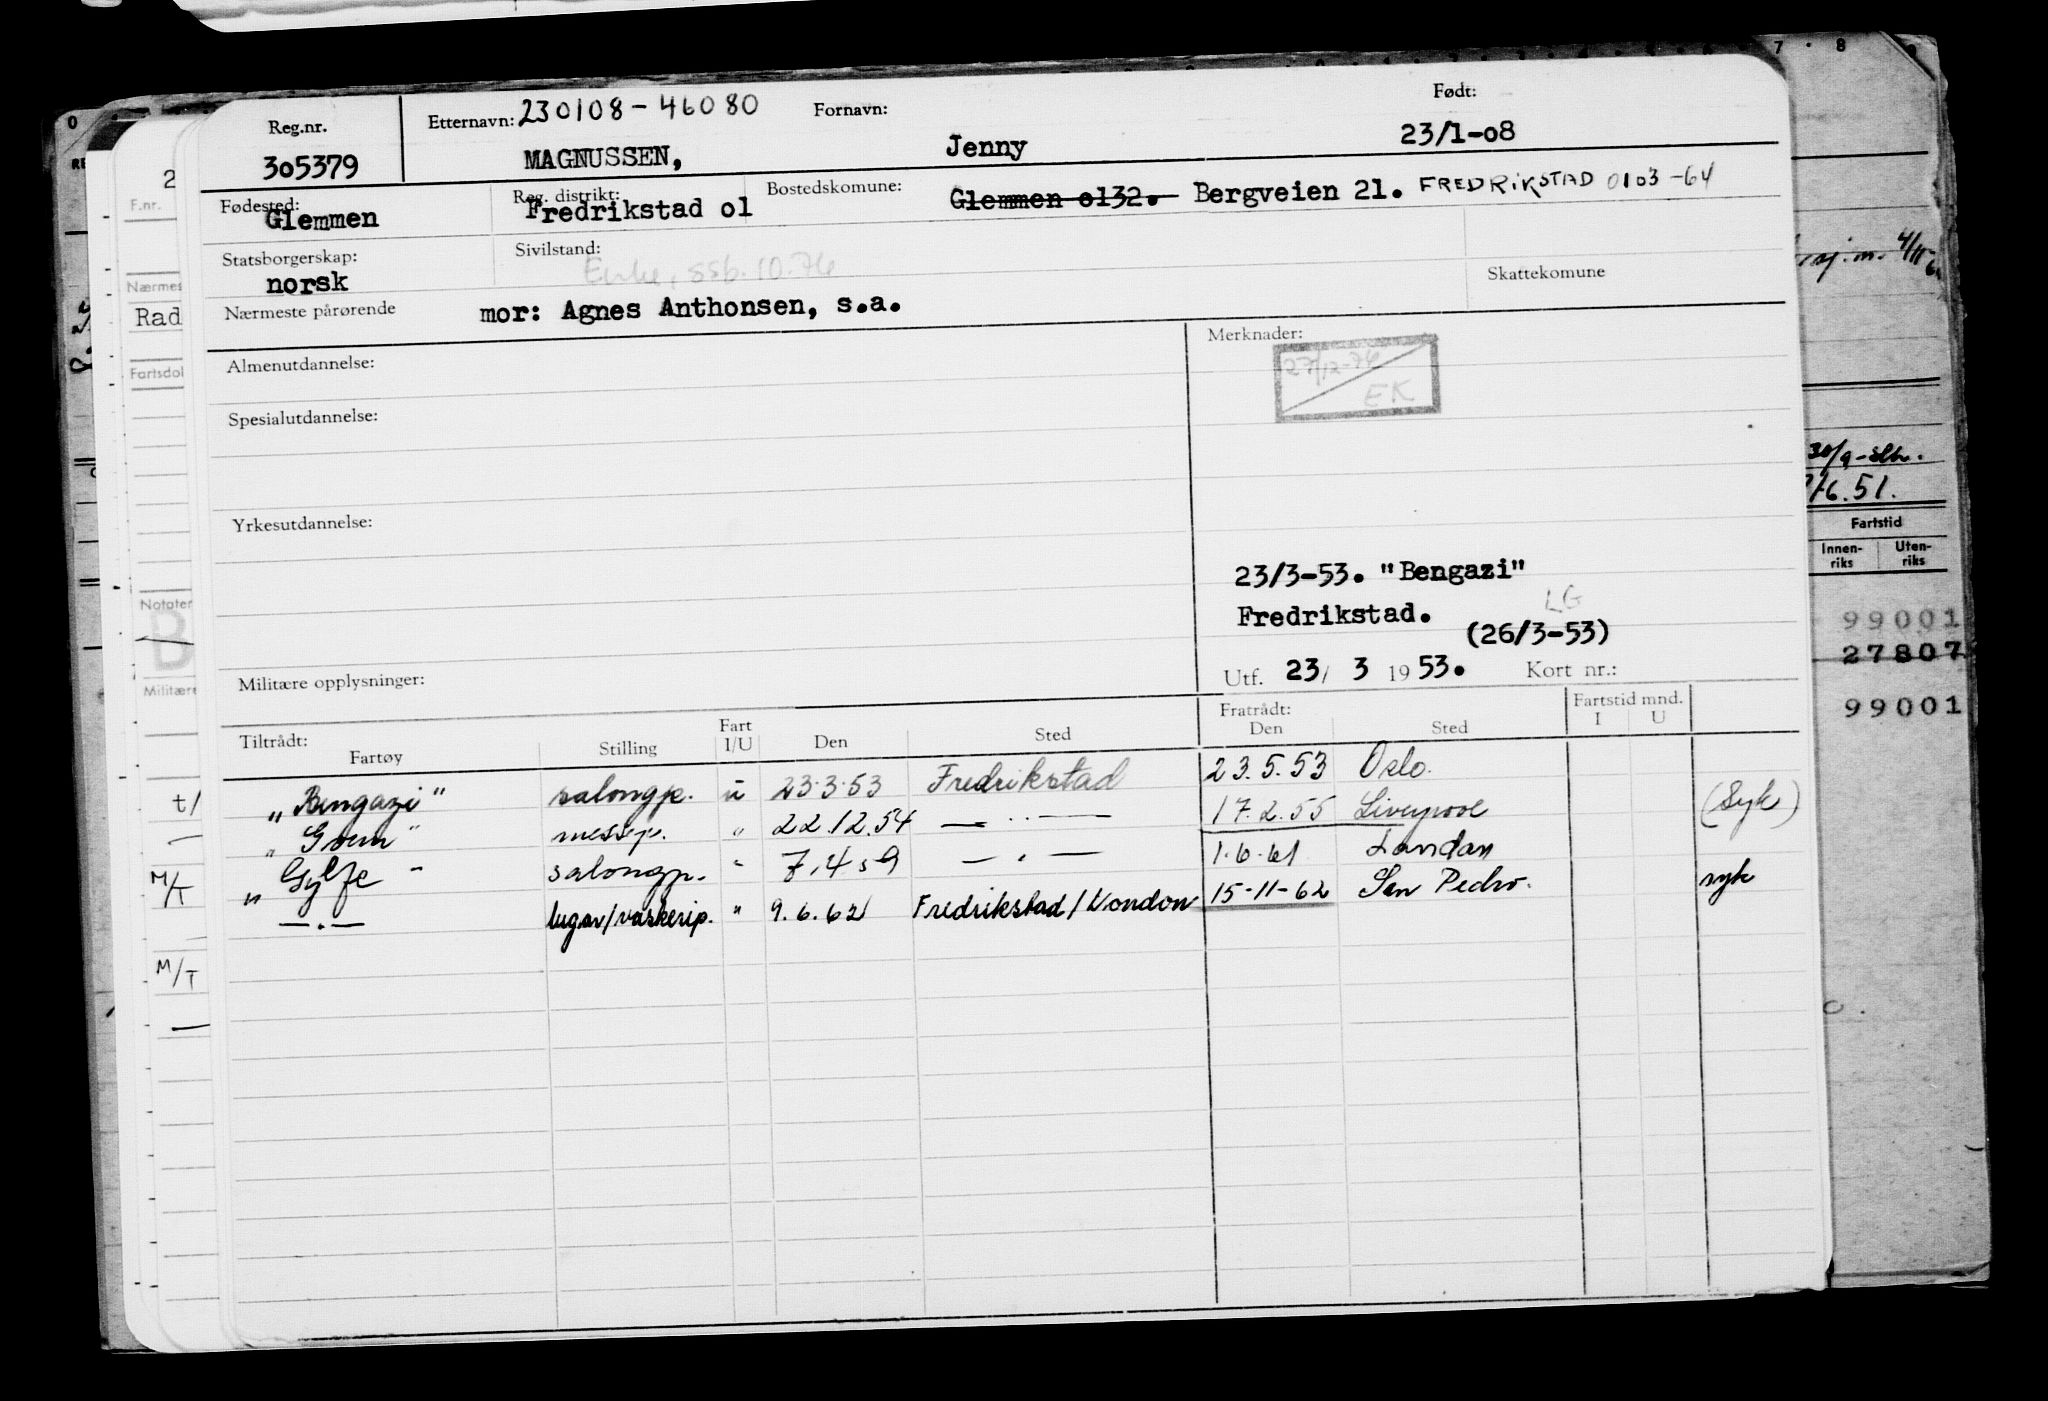 Reg.nr. Etternavn: 230108-46080 Fornavn: Født:
305379 MAGNUSSEN, Jenny 23/1-08
Fødested: Reg. distrikt: Bostedskomune:
Glemmen Fredrikstad o1 Glemmen o132. Bergveien 21. FREDRIKSTAD 0103-64
Statsborgerskap: Sivilstand: Skattekomune
norsk Enke, ssb. 10.76
Nærmeste pårørende mor: Agnes Anthonsen, s.a.
Almenutdannelse: Merknader:
27/12-76
EK
Spesialutdannelse:
Yrkesutdannelse:
23/3-53. "Bengazi"
Fredrikstad. LG
(26/3-53)
Militære opplysninger: Utf. 23/ 3 1953. Kort nr.:
Tiltrådt: Fratrådt: Fartstid mnd.
Fartøy Stilling Fart I/U Den Sted Den Sted I U
"Bengazi" salongp. u 23.3.53 Fredrikstad 23.5.53 Oslo.
messp. " 22.12.54 — " — 17.2.55 Liverpool (Syk)
"Gylfe" salongp. " 7.4.59 — " — 1.6.61 London
— . — lugar/vaskerip. " 9.6.62 Fredrikstad/London 15-11-62 San Pedro. syk
F.nr.
Rad
Fartsdol
Notater
B
Militære
t/
M/T
M/T
7 8
4/11
30/9
1/6.51.
Fartstid
Innen-riks Uten-riks
99001
27807
99001